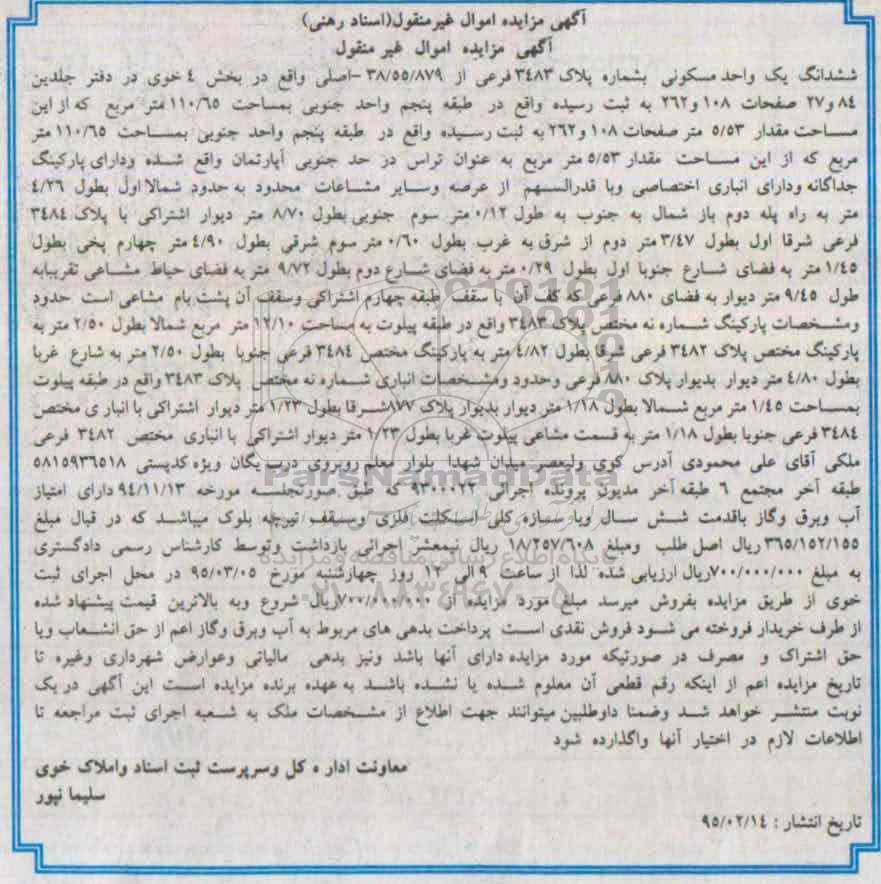 آگهی مزایده اموال غیرمنقول(اسناد رهنی)
آگهی مزایده اموال غیر منقول
ششدانگ یک واحد مسکونی بشماره پلاک ۳۴۸۳ فرعی از ۳۸/۵۵/۸۷۹ -اصلی واقع در بخش ۴ خوی در دفتر جلدین
۸۴ و۲۷ صفحات ۱۰۸ و۲۶۲ به ثبت رسیده واقع در طبقه پنجم واحد جنوبی بمساحت ۱۱۰/۶۵ متر مربع که از این
مساحت مقدار ۵/۵۳ متر صفحات ۱۰۸ و۲۶۲ به ثبت رسیده واقع در طبقه پنجم واحد جنوبی بمساحت ۱۱۰/۶۵ متر
مربع که از این مساحت مقدار ۵/۵۳ متر مربع به عنوان تراس در حد جنوبی آپارتمان واقع شده ودارای پارکینگ
جداگانه ودارای انباری اختصاصی وبا قدرالسهم از عرصه وسایر مشاعات محدود به حدود شمالا اول بطول ۴/۲۶
متر به راه پله دوم باز شمال به جنوب به طول ۰/۱۲ متر سوم جنوبی بطول ۸/۷۰ متر دیوار اشتراکی با پلاک ۳۴۸۴
فرعی شرقا اول بطول ۳/۴۷ متر دوم از شرق به غرب بطول ۰/۶۰ متر سوم شرقی بطول ۴/۹۰ متر چهارم پخی بطول
۱/۴۵ متر به فضای شارع جنوبا اول بطول ۰/۲۹ متر به فضای شارع دوم بطول ۹/۷۲ متر به فضای حیاط مشاعی تقریبابه
طول ۹/۴۵ متر دیوار به فضای ۸۸۰ فرعی که کف آن با سقف طبقه چهارم اشتراکی وسقف آن پشت بام مشاعی است حدود
ومشخصات پارکینگ شماره نه مختص پلاک ۳۴۸۳ واقع در طبقه پیلوت به مساحت ۱۲/۱۰ متر مربع شمالا بطول ۲/۵۰ متر به
پارکینگ مختص پلاک ۳۴۸۲ فرعی شرقا بطول ۴/۸۲ متر به پارکینگ مختص ۳۴۸۴ فرعی جنوبا بطول ۲/۵۰ متر به شارع غربا
بطول ۴/۸۰ متر دیوار بدیوار پلاک ۸۸۰ فرعی وحدود ومشخصات انباری شماره نه مختص پلاک ۳۴۸۳ واقع در طبقه پیلوت
بمساحت ۱/۴۵ متر مربع شمالا بطول ۱/۱۸ متر دیوار بدیوار پلاک ۸۷۷شرقا بطول ۱/۲۳ متر دیوار اشتراکی با انباری مختص
۳۴۸۴ فرعی جنوبا بطول ۱/۱۸ متر به قسمت مشاعی پیلوت غربا بطول ۱/۲۳ متر دیوار اشتراکی با انباری مختص ۳۴۸۲ فرعی
ملکی آقای علی محمودی آدرس کوی ولیعصر میدان شهدا بلوار معلم روبروی درب یگان ویژه کدپستی ۵۸۱۵۹۳۶۵۱۸
طبقه آخر مجتمع ۶ طبقه آخر مدیون پرونده اجرائی ۹۳۰۰۰۲۳ که طبق صورتجلسه مورخه ۹۴/۱۱/۱۳ دارای امتیاز
آب وبرق وگاز باقدمت شش سال وبا سازه کلی اسکلت فلزی وسقف تیرچه بلوک میباشد که در قبال مبلغ
۳۶۵/۱۵۲/۱۵۵ ریال اصل طلب ومبلغ ۱۸/۲۵۷/۶۰۸ ریال نیمعشر اجرائی بازداشت وتوسط کارشناس رسمی دادگستری
به مبلغ ۷۰۰/۰۰۰/۰۰۰ریال ارزیابی شده لذا از ساعت ۹ الی ۱۲ روز چهارشنبه مورخ ۹۵/۰۳/۰۵ در محل اجرای ثبت
خوی از طریق مزایده بفروش میرسد مبلغ مورد مزایده از ۷۰۰/۰۰۰/۰۰۰ریال شروع وبه بالاترین قیمت پیشنهاد شده
از طرف خریدار فروخته می شود فروش نقدی است پرداخت بدهی های مربوط به آب وبرق وگاز اعم از حق انشعاب ویا
حق اشتراک و مصرف در صورتیکه مورد مزایده دارای آنها باشد ونیز بدهی مالیاتی وعوارض شهرداری وغیره تا
تاریخ مزایده اعم از اینکه رقم قطعی آن معلوم شده یا نشده باشد به عهده برنده مزایده است این آگهی در یک
نوبت منتشر خواهد شد وضمنا داوطلبین میتوانند جهت اطلاع از مشخصات ملک به شعبه اجرای ثبت مراجعه تا
اطلاعات لازم در اختیار آنها واگذارده شود
معاونت اداره کل وسرپرست ثبت اسناد واملاک خوی
سلیما نپور
تاریخ انتشار : ۹۵/۰۲/۱۴
ParsNamadData